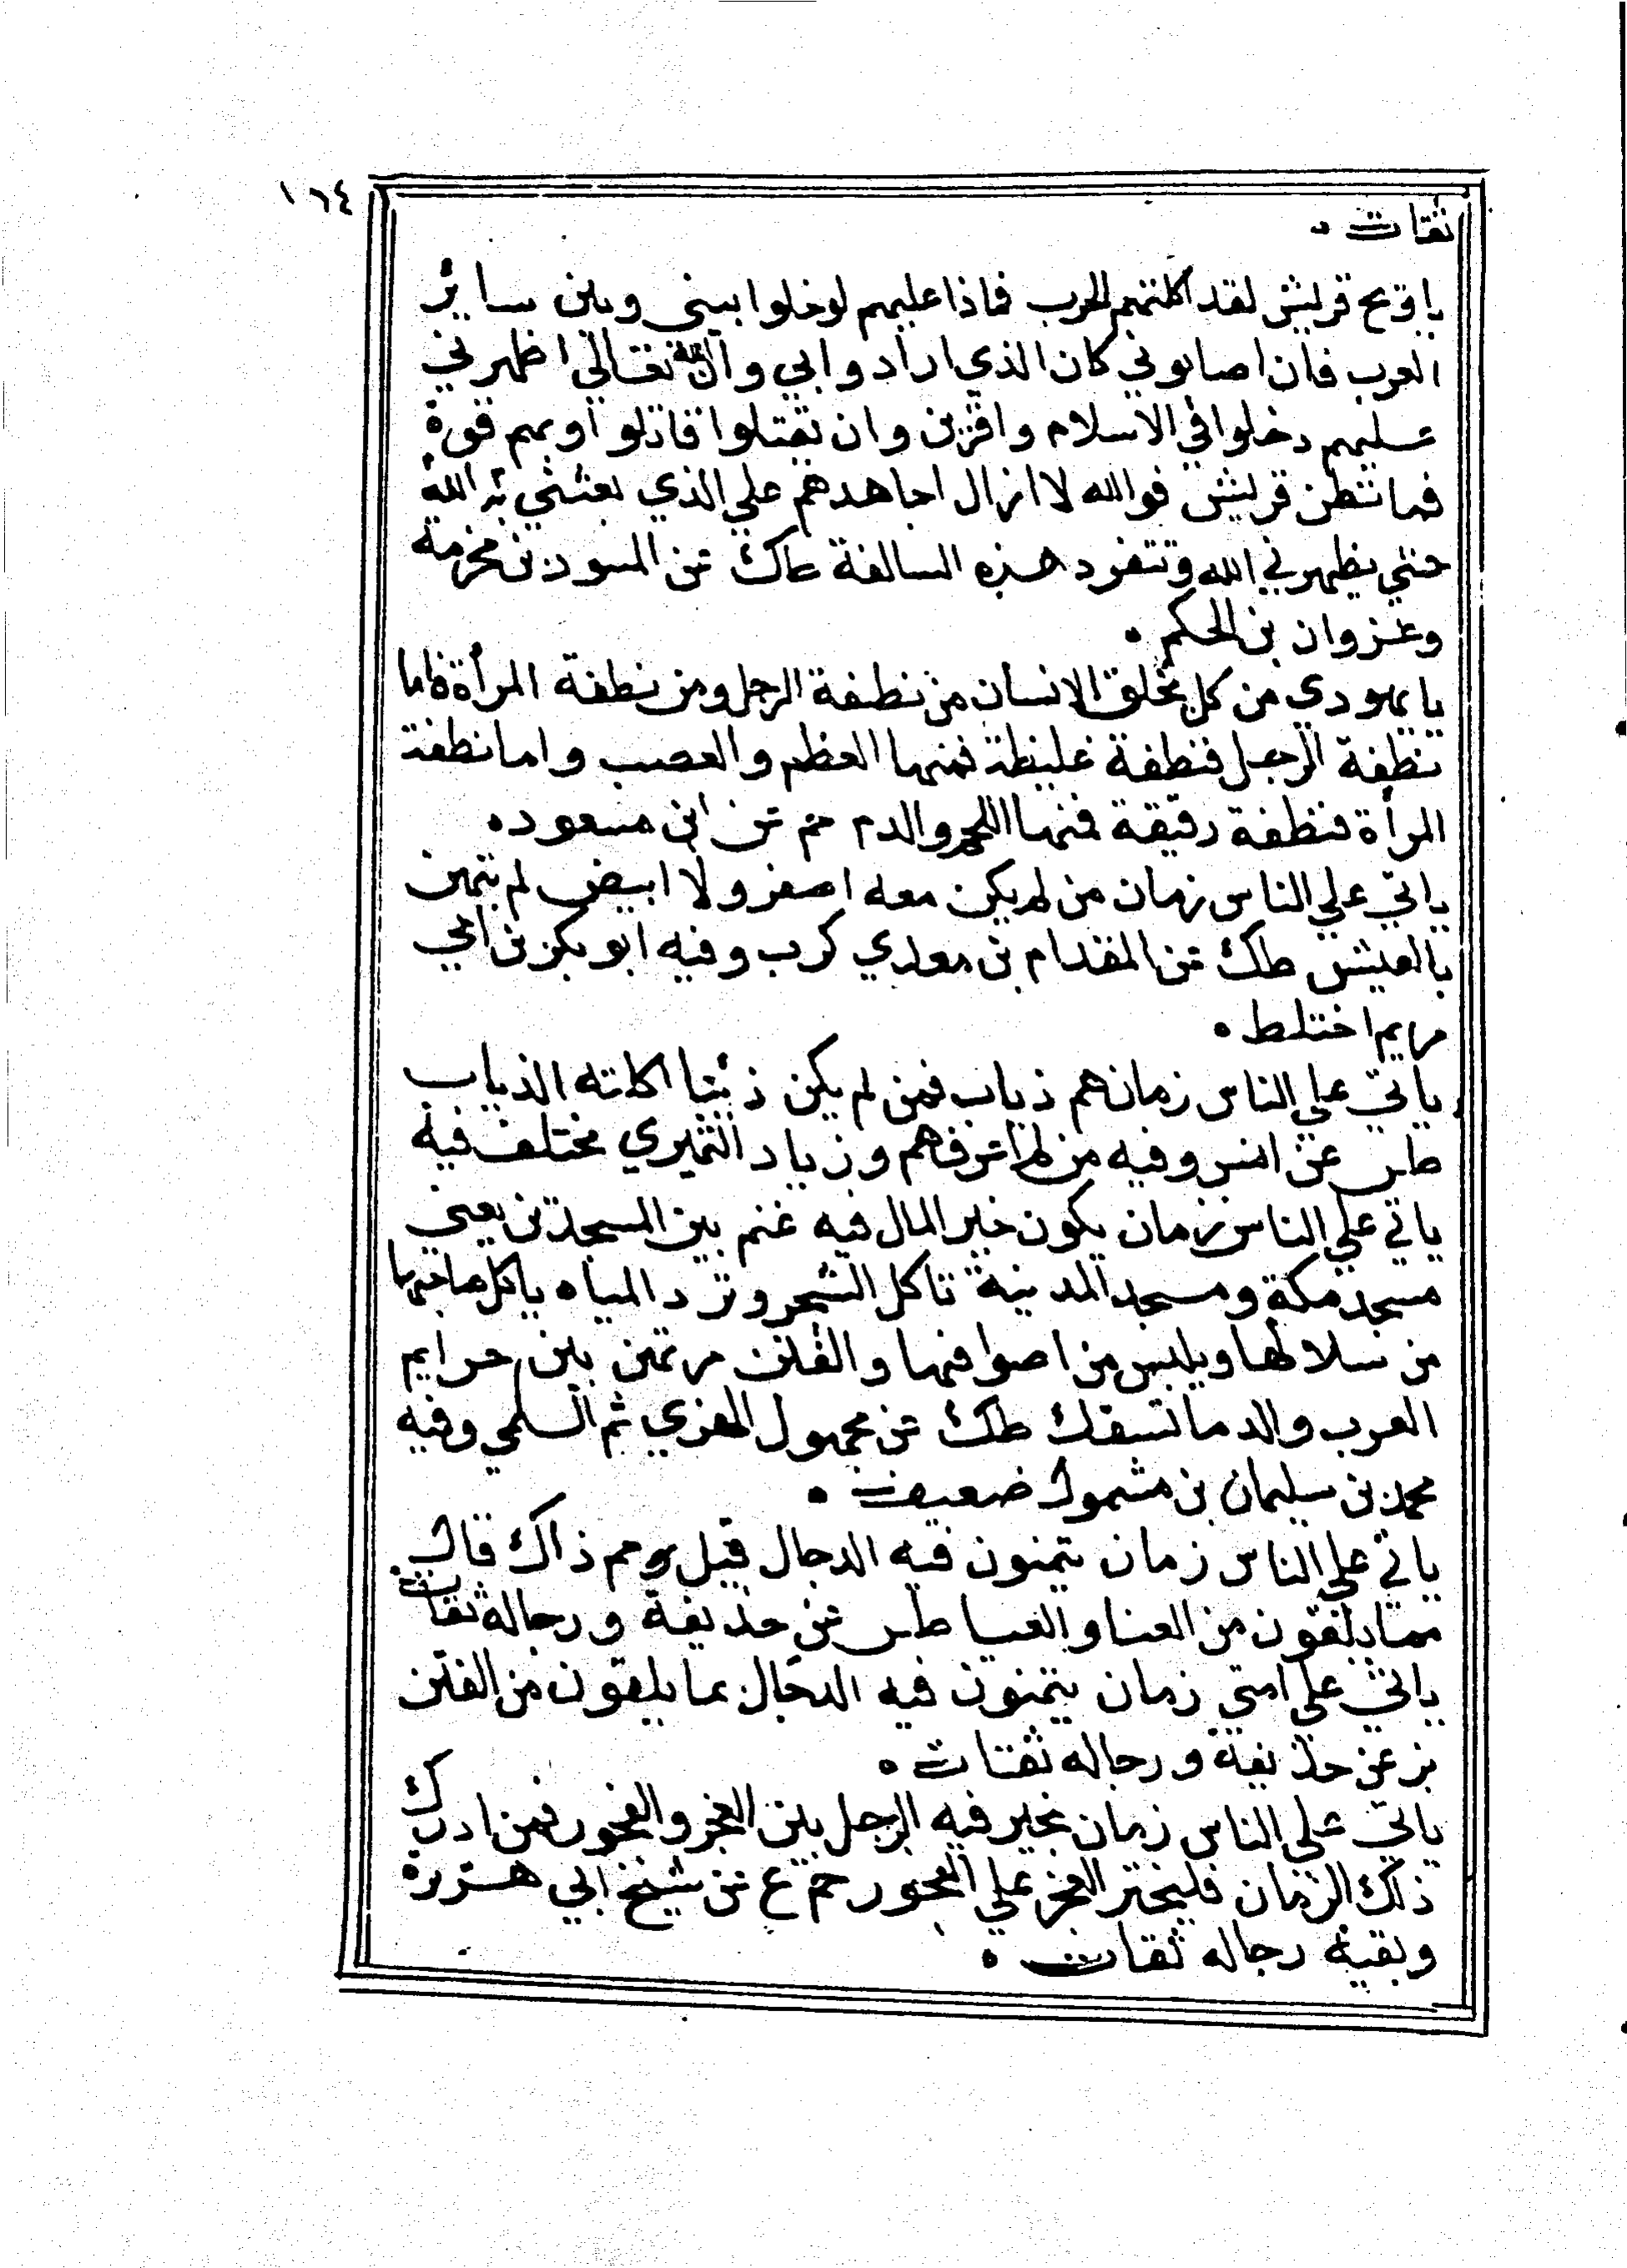 ١٦٤
ثقات ۰
يا ويح قريش لقد اكلتهم الحرب فماذا عليهم لوخلوا بيني وبين سائر
العرب فان اصابوني كان الذي ارادوا بي وان الله تعالي اظهرني
عليهم دخلوا في الاسلام وافرين وان تقتلوا قاتلوا وبهم قوة
فما تظن قريش فوالله لا ازال اجاهدهم علي الذي بعثني به الله
حتي يظهرني الله وتنفرد هذه السالفة عن المسور بن مخرمة
ومروان بن الحكم ۰
يا يهودي من كل يخلق الانسان من نطفة الرجل ومن نطفة المرأة فاما
نطفة الرجل فنطفة غليظة فمنها العظم والعصب واما نطفة
المرأة فنطفة رقيقة فمنها اللحم والدم حم عن ابن مسعود ۰
ياتي علي الناس زمان من لم يكن معه اصفر ولا ابيض لم يتهن
بالعيش طك عن المقدام بن معدي كرب وفيه ابو بكر بن ابي
مريم اختلط ۰
ياتي علي الناس زمان هم ذياب فمن لم يكن ذئبا اكلته الذياب
طس عن انس وفيه من لم اعرفهم وزياد النميري مختلف فيه
ياتي علي الناس زمان يكون خير المال فيه غنم بين المسجدين يعني
مسجد مكة ومسجد المدينة تاكل الشجر وترد المياه ياكل صاحبها
من سلالها ويلبس من اصوافها والفتن مرتهن بين حرايم
العرب والدما تسفك طك عن مجهول البهزي ثم السلمي وفيه
محمد بن سليمان بن مشمول ضعيف ۰
ياتي علي الناس زمان يتمنون فيه الدجال قيل ومم ذاك قال
مما يلقون من العنا والعيا طس عن حذيفة ورجاله ثقات
ياتي علي امتي زمان يتمنون فيه الدجال بما يلقون من الفتن
بز عن حذيفة ورجاله ثقات ۰
ياتي علي الناس زمان يخير فيه الرجل بين العجز والفجور فمن ادرك
ذلك الزمان فليختر العجز علي الفجور حم ع عن شيخ ابي هريرة
وبقية رجاله ثقات ۰